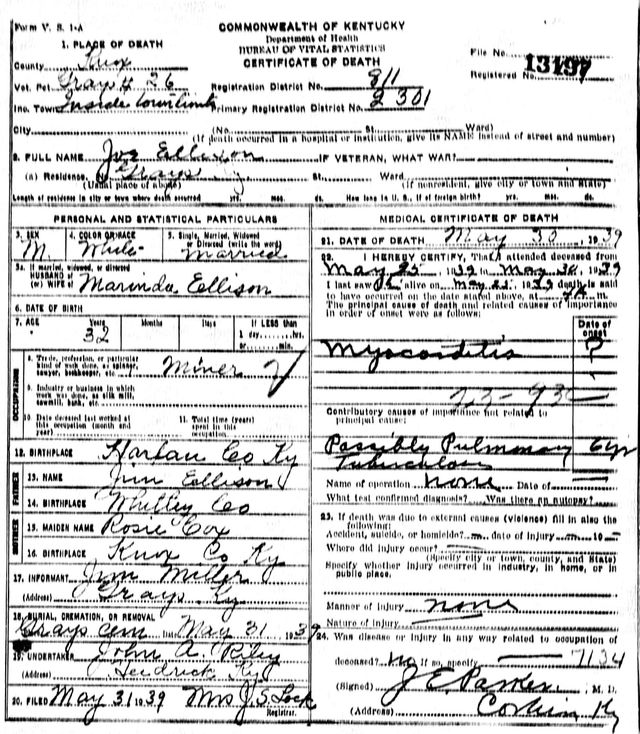 Form V. S. 1-A
COMMONWEALTH OF KENTUCKY
Department of Health
BUREAU OF VITAL STATISTICS
CERTIFICATE OF DEATH
1. PLACE OF DEATH
County Knox
Vot. Pct. Grays # 26
Inc. Town Inside Town limits
Registration District No. 811
Primary Registration District No. 2301
File No.
Registered No. 13197
City (No. St. Ward)
(If death occurred in a hospital or institution, give its NAME instead of street and number)
2. FULL NAME Joe Ellison IF VETERAN, WHAT WAR?
(a) Residence. No Grays Ky St. Ward
(Usual place of abode) (If nonresident, give city or town and State)
Length of residence in city or town where death occurred yrs. mos. ds. How long in U. S., if of foreign birth? yrs. mos. ds.
PERSONAL AND STATISTICAL PARTICULARS
3. SEX M
4. COLOR OR RACE White
5. Single, Married, Widowed or Divorced (write the word) Married
5a. If married, widowed, or divorced
HUSBAND of
(or) WIFE of Marinda Ellison
6. DATE OF BIRTH
7. AGE Years 32 Months Days If LESS than
1 day, hrs.
or min.
OCCUPATION
8. Trade, profession, or particular
kind of work done, as spinner,
sawyer, bookkeeper, etc. Miner
9. Industry or business in which
work was done, as silk mill,
sawmill, bank, etc.
10. Date deceased last worked at
this occupation (month and
year)
11. Total time (years)
spent in this
occupation.
12. BIRTHPLACE Harlan Co Ky
FATHER
13. NAME Jim Ellison
14. BIRTHPLACE Whitley Co
MOTHER
15. MAIDEN NAME Rosie Cox
16. BIRTHPLACE Knox Co Ky
17. INFORMANT Jim Miller
(Address) Grays Ky
18. BURIAL, CREMATION, OR REMOVAL
Grays Cem Date May 31 1939
19. UNDERTAKER John A. Riley
Heidrick Ky
20. FILED May 31 1939 Mrs J S Lock
Registrar.
MEDICAL CERTIFICATE OF DEATH
21. DATE OF DEATH May 30, 1939
22. I HEREBY CERTIFY, That I attended deceased from
May 25 1939 to May 30, 1939
I last saw h alive on May 25 1939 death is said
to have occurred on the date stated above, at m.
The principal cause of death and related causes of importance
in order of onset were as follows:
Date of
onset
Myocarditis ?
23-93c
Contributory causes of importance not related to
principal cause:
Possibly Pulmonary
Tuberculosis
Name of operation none Date of
What test confirmed diagnosis? Was there an autopsy?
23. If death was due to external causes (violence) fill in also the
following:
Accident, suicide, or homicide? date of injury 19
Where did injury occur?
(Specify city or town, county, and State)
Specify whether injury occurred in industry, in home, or in
public place.
Manner of injury none
Nature of injury
24. Was disease or injury in any way related to occupation of
deceased? no If so, specify 7134
(Signed) J E Parker M. D.
(Address) Corbin Ky